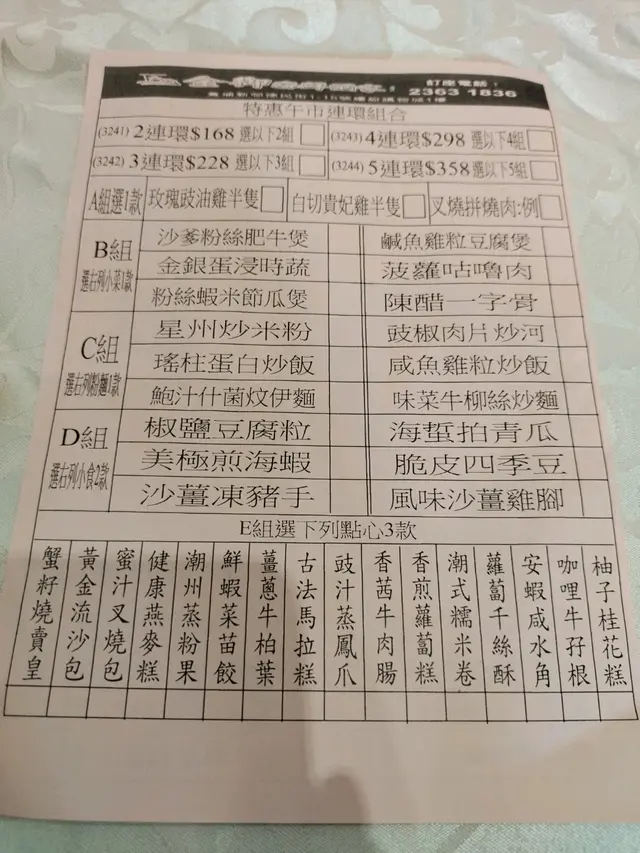 訂座電話:
2363 1836
特惠午市連環組合
(3241) 2連環$168 選以下2組
(3243) 4連環$298 選以下4組
(3242) 3連環$228 選以下3組
(3244) 5連環$358 選以下5組
A組選1款 玫瑰豉油雞半隻 白切貴妃雞半隻 叉燒拼燒肉:例
B組
選右列小菜1款
沙爹粉絲肥牛煲 鹹魚雞粒豆腐煲
金銀蛋浸時蔬 菠蘿咕嚕肉
粉絲蝦米節瓜煲 陳醋一字骨
C組
選右列粉麵1款
星州炒米粉 豉椒肉片炒河
瑤柱蛋白炒飯 咸魚雞粒炒飯
鮑汁什菌炆伊麵 味菜牛柳絲炒麵
D組
選右列小食2款
椒鹽豆腐粒 海蜇拍青瓜
美極煎海蝦 脆皮四季豆
沙薑凍豬手 風味沙薑雞腳
E組選下列點心3款
蟹籽燒賣皇
黃金流沙包
蜜汁叉燒包
健康燕麥糕
潮州蒸粉果
鮮蝦菜苗餃
薑蔥牛柏葉
古法馬拉糕
豉汁蒸鳳爪
香茜牛肉腸
香煎蘿蔔糕
潮式糯米卷
蘿蔔千絲酥
安蝦咸水角
咖哩牛孖根
柚子桂花糕